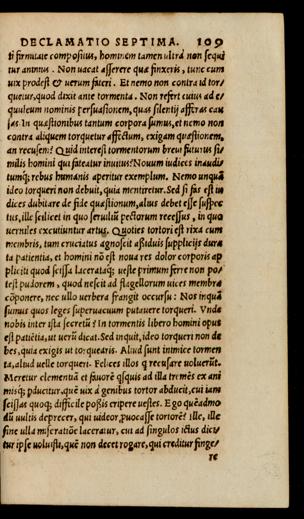 DECLAMATIO SEPTIMA. 109
ti firmitate compositus, hominem tamen ultrà non sequi
tur animus. Non uacat asserere quæ finxeris, tunc cum
uix prodest & uerum fateri. Et nemo non contra id tor-
quetur, quod dixit ante tormenta. Non refert cuius ad e-
quuleum nominis persuasionem, quas silentij afferas cau
sas. In quæstionibus tantum corpora sumus, et nemo non
contra aliquem torquetur affectum, exigam quæstionem,
an recusem? Quid interest tormentorum breui futurus si/
milis homini qui fateatur inuitus? Nouum iudices inaudi/
tumq; rebus humanis aperitur exemplum. Nemo unquā
ideo torqueri non debuit, quia mentiretur. Sed si fas est in
dices dubitare de fide quæstionum, alius debet esse suspec
tus, ille scilicet in quo seruiliū pectorum recessus, in quo
uerniles excutiuntur artus. Quoties tortori est rixa cum
membris, tum cruciatus agnoscit assiduis supplicijs dura
ta patientia, et homini nō est noua res dolor corporis ap
pliciti quod scissa lacerataq; ueste primum ferre non po/
test pudorem, quod nescit ad flagellorum uices membra
cōponere, nec ullo uerbera frangit occursu: Nos inquā
sumus quos leges superuacuum putauere torqueri. Vnde
nobis inter ista secretū? In tormentis libero homini opus
est patiētia, ut uerū dicat. Sed inquit, ideo torqueri non de
bes, quia exigis ut torquearis. Aliud sunt inimice tormen
ta, aliud uelle torqueri. Felices illos q̃ recusare uoluerūt.
Meretur clementiā et fauorē q̃squis ad illa tremēs ex ani
misq; pducitur, quē uix à genibus tortor abducit, cui iam
scissas quoq; difficile possis eripere uestes. Ego quēadmo
dū uultis deprecer, qui uideor, puocasse tortorē? Ille, ille
sine ulla miseratiōe laceratur, cui ad singulos ictus dici/
tur ipse uoluisti, quē non decet rogare, qui creditur finge/
re